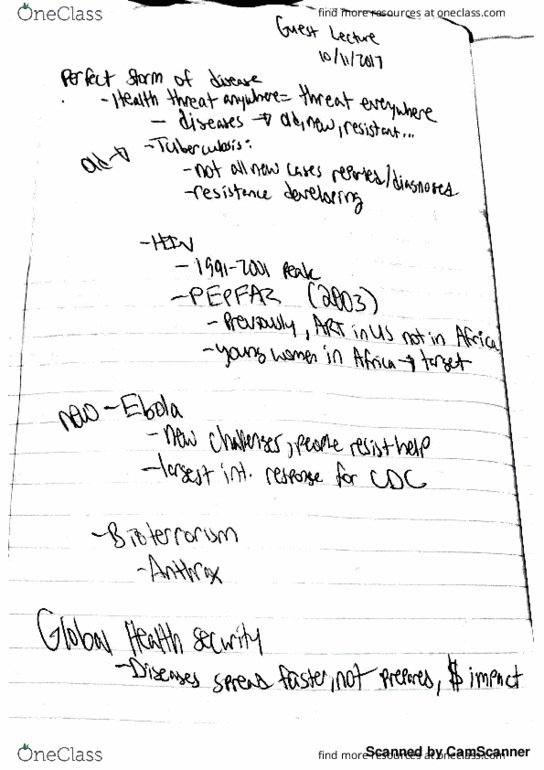 OneClass
find more resources at oneclass.com
Guest Lecture
10/11/2017
Perfect Storm of disease
- Health threat anywhere = threat everywhere
- diseases → old, new, resistant...
old → - Tuberculosis:
- not all new cases reported/diagnosed
- resistance developing
- HIV
- 1991-2001 Peak
- PEPFAR (2003)
- Previously, ART in US not in Africa
- young women in Africa → target
new - Ebola
- new challenges, people resist help
- largest int. response for CDC
- Bioterrorism
- Anthrax
Global Health security
- Diseases spread faster, not prepared, $ impact
OneClass
find more resources at oneclass.com
Scanned by CamScanner